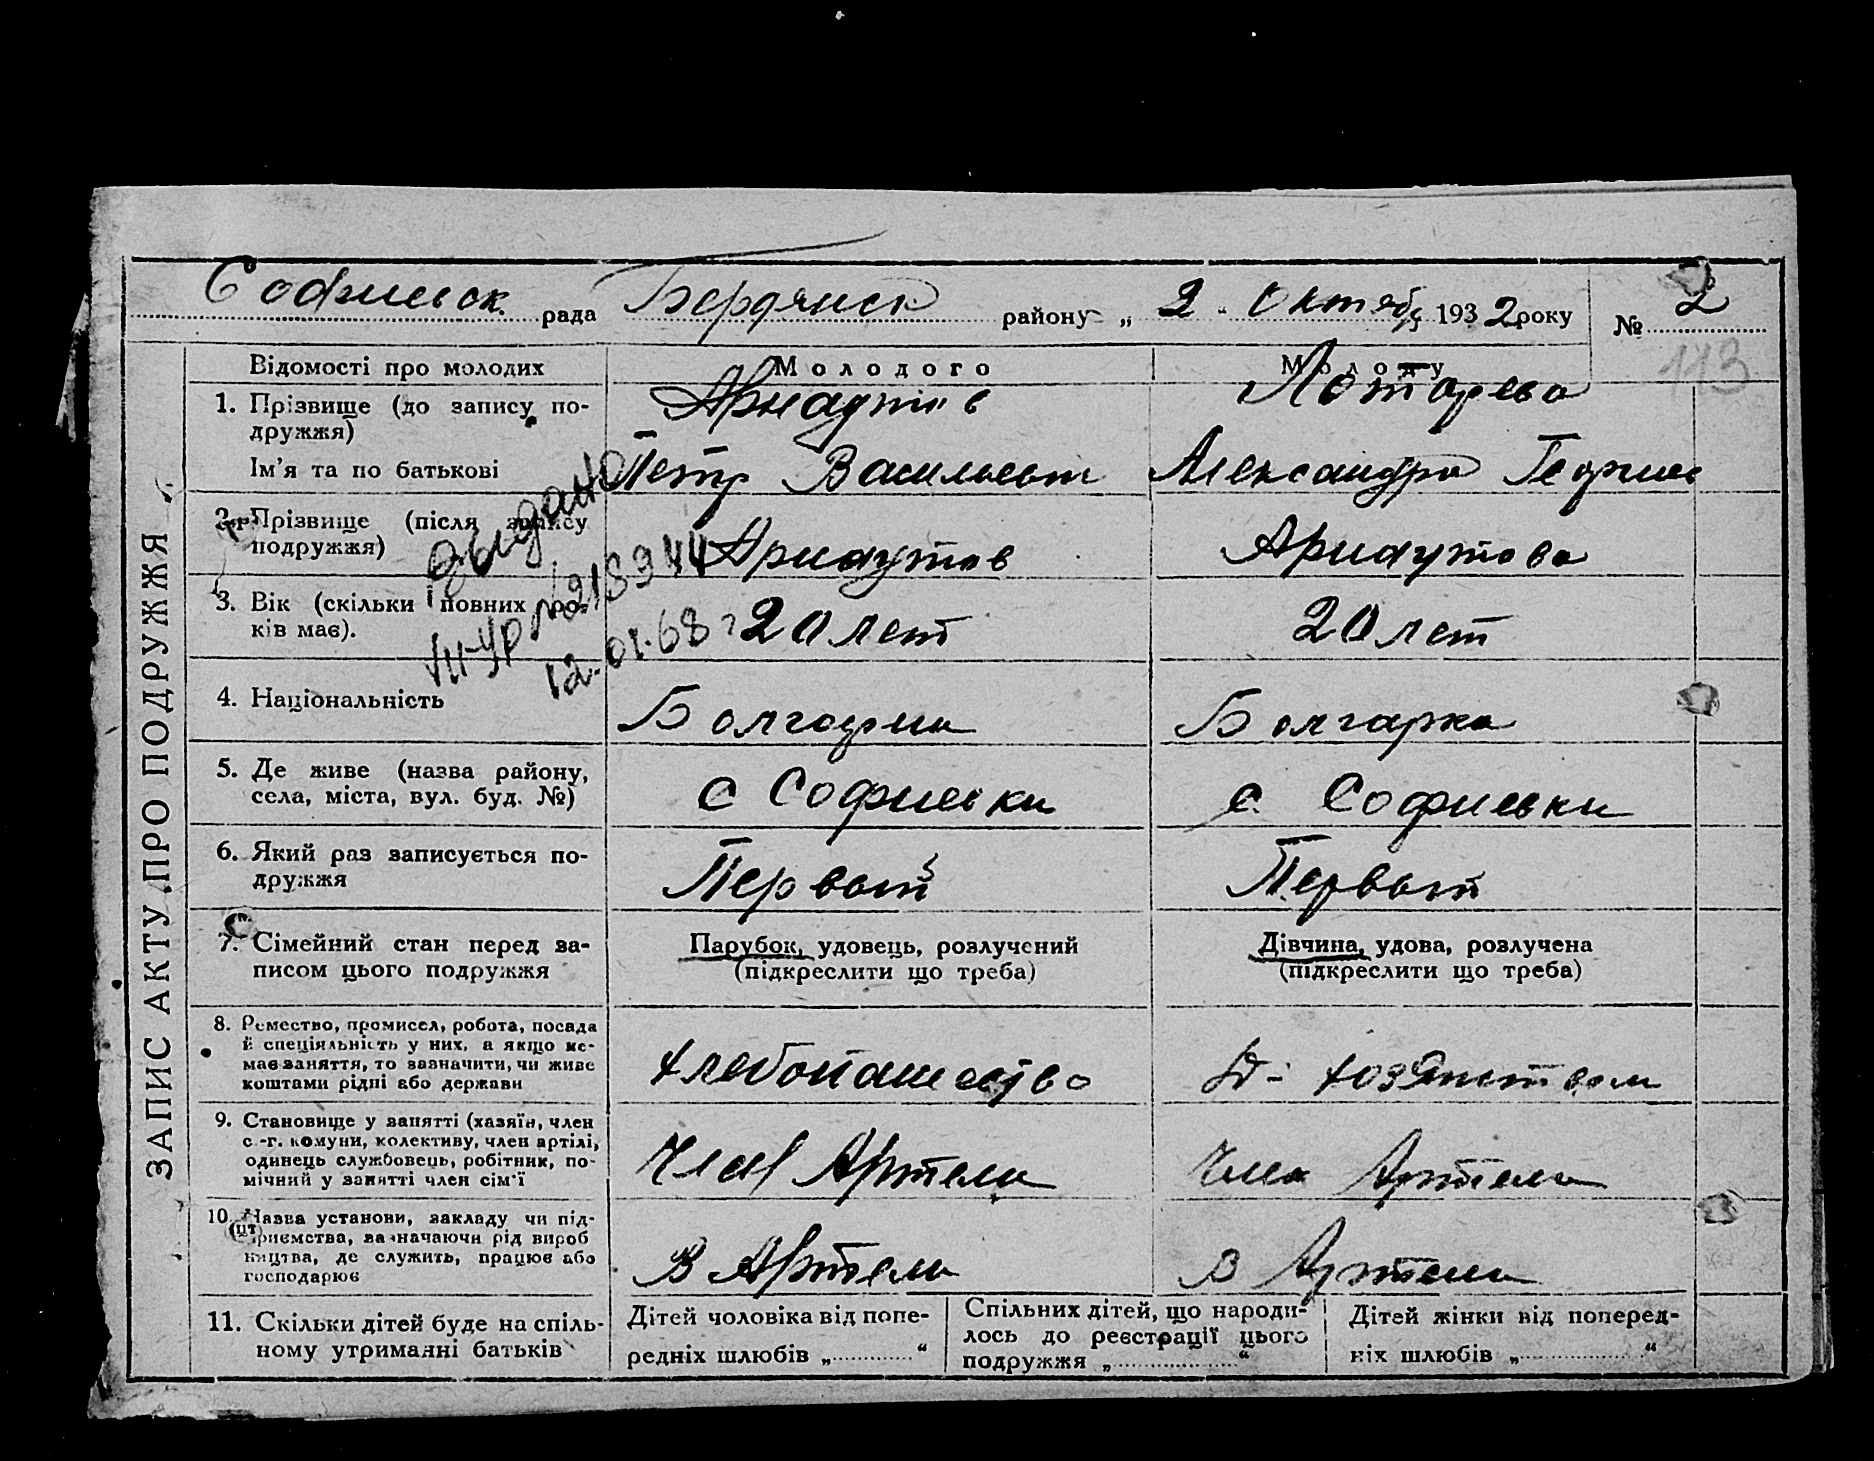 Софиевск. рада Бердянск району „ 2 " Октябр 1932 року № 2
113
ЗАПИС АКТУ ПРО ПОДРУЖЖЯ
Відомості про молодих Молодого Молоду
1. Прізвище (до запису по-
дружжя)
Арнаутов Лотарева
Ім'я та по батькові Петр Васильевич Александра Георгиев
2. Прізвище (після запису
подружжя)
Арнаутов Арнаутова
выдано
№ 218944
12.01.68 г
3. Вік (скільки повних ро-
ків має).
20 лет 20 лет
4. Національність Болгарин Болгарка
5. Де живе (назва району,
села, міста, вул. буд. №)
с Софиевки с. Софиевки
6. Який раз записується по-
дружжя
Первый Первый
7. Сімейний стан перед за-
писом цього подружжя
Парубок, удовець, розлучений
(підкреслити що треба)
Дівчина, удова, розлучена
(підкреслити що треба)
8. Ремество, промисел, робота, посада
й спеціяльність у них, а якщо не-
має заняття, то зазначити, чи живе
коштами рідні або держави
хлебопашество Д- хозяйством
9. Становище у занятті (хазяїн, член
с.-г. комуни, колективу, член артілі,
одинець службовець, робітник, по-
мічний у занятті член сім'ї
Член Артели Член Артели
10. Назва установи, закладу чи під-
приємства, зазначаючи рід вироб
ництва, де служить, працює або
господарює
В Артели В Артели
11. Скільки дітей буде на спіль-
ному утриманні батьків
Дітей чоловіка від попе-
редніх шлюбів „ “
Спільних дітей, що народи-
лось до реєстрації цього
подружжя „ “
Дітей жінки від поперед-
ніх шлюбів „ “